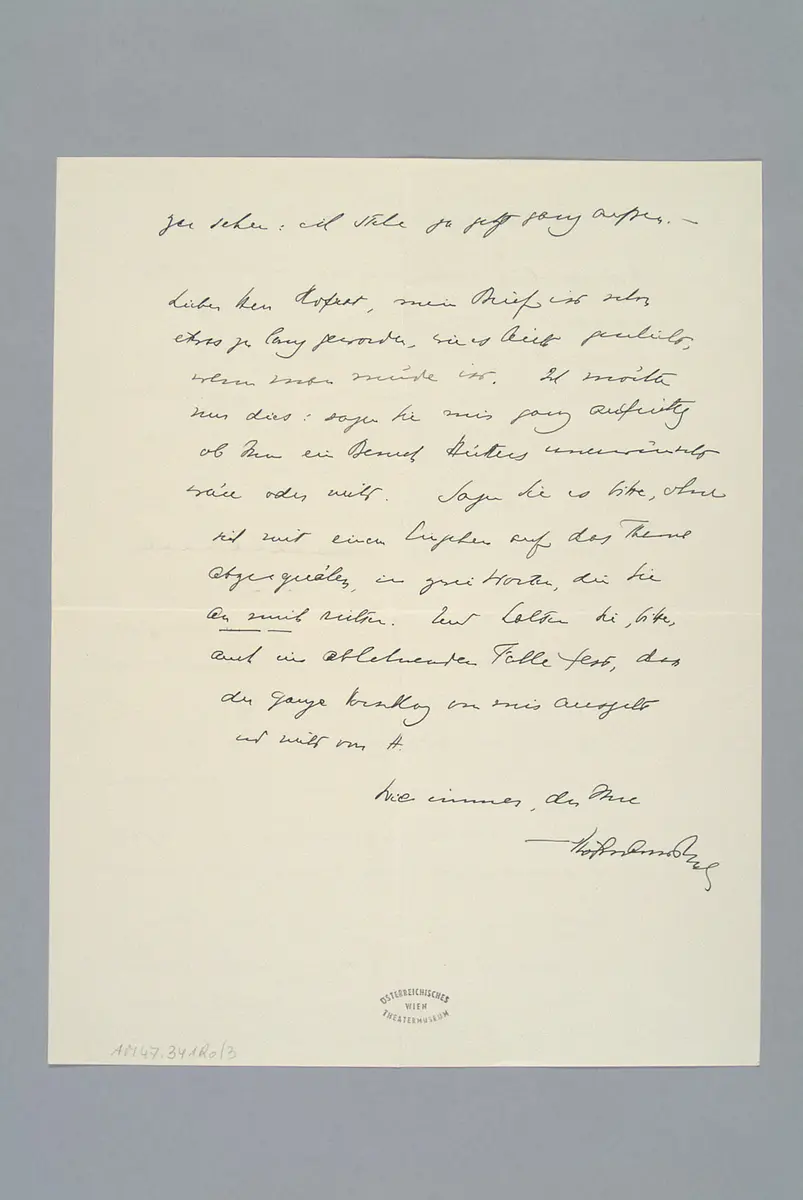 zu sehen: ich stehe ja jetzt ganz aussen. —
Lieber Herr Hofrat, mein Brief ist schon
etwas zu lang geworden, wie es leicht geschieht,
wenn man müde ist. Ich möchte
nur dies: sagen Sie mir ganz aufrichtig
ob Ihnen ein Besuch unerwünscht
wäre oder nicht. Sagen Sie es bitte, ohne
sich mit einem Eingehen auf das Thema
abzuquälen, in zwei Worten, die Sie
an mich richten. Und halten Sie, bitte,
auch im ablehnenden Falle fest, dass
der ganze Vorschlag von mir ausgeht
und nicht von H.
Wie immer, der Ihre
Hofmannsthal
ÖSTERREICHISCHES
WIEN
THEATERMUSEUM
AM47.341Ro/3